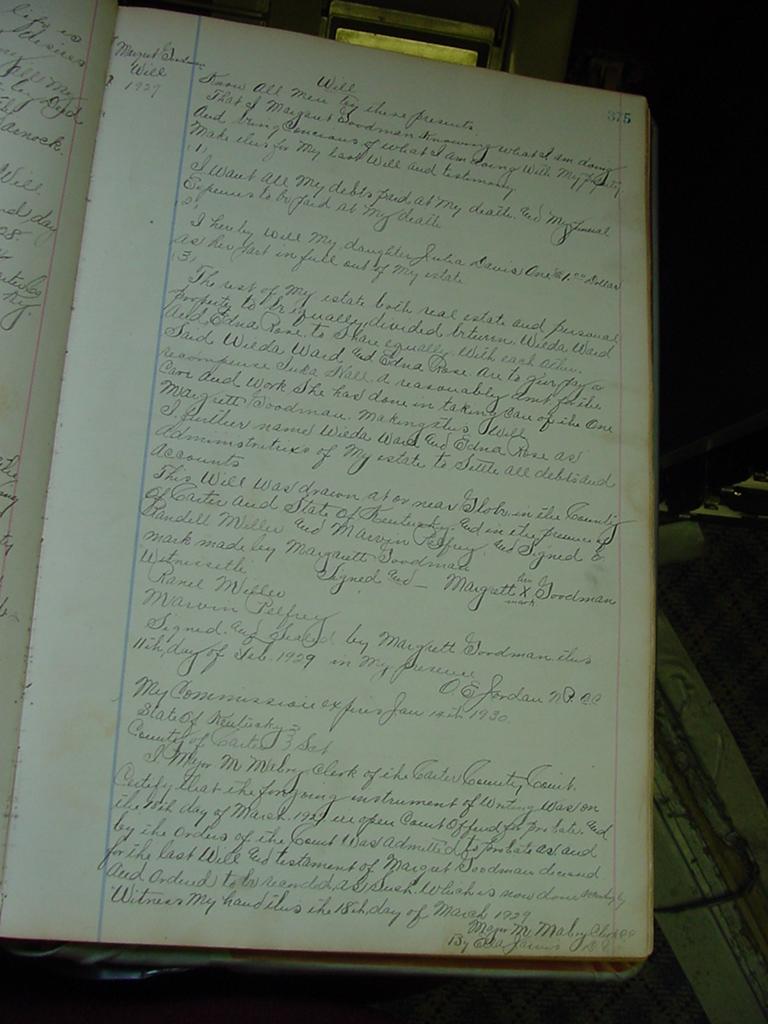 life is
desires
all my
by Deed
Will
nd day
28.
Ky.
Margret Goodman
Will
1929
375
Will
Know All Men by these presents.
That I Margaret Goodman Knowing what I am doing
And being Concious of what I am doing With My property
Make this for My last Will and testimony
(1)
I Want All My debts paid at My death. And My funeral
Expenses to be paid at My death
2)
I hereby Will My daughter Julia Davis One $1.00 Dollar
as her part in full out of My estate
(3)
The rest of My estate both real estate and personal
property to be equally divided between. Wilda Ward
And Edna Rose. to Share equally With each other.
Said Wilda Ward And Edna Rose Are to give pay or
recompense Hall. a reasonably amt for the
Care And Work She has done in taking Care of the One
Margrett Goodman. Making this Will
I further name Wilda Ward And Edna Rose as
Administratrixs of My estate to Settle all debts and
Accounts
This Will Was drawn at or near Globe in the County
Of Carter And State Of Kentucky. And in the presence of
Randell Miller And Marvin Pelfrey And Signed &
mark made by Margarett Goodman
Witnesseth Signed And — Margrett her X mark Goodman
Ranel Miller
Marvin Pelfrey
Signed. And Sealed by Margrett Goodman. this
11th, day of Feb. 1929 in My presence
O E Jordan N.P. CC
My Commission expires Jan 14th 1930.
State Of Kentucky
County of Carter } Sct
I Major M Mabry Clerk of the Carter County Court.
Certify that the forgoing instrument of Writing Was on
the 18th day of March. 1929 in open Court Offerd for probate. And
by the Orders of the Court Was admitted to probate as and
for the last Will And testament of Margret Goodman deceased
And Ordered to be recorded, as Such. Which is now done accordingly
Witness My hand this the 18th, day of March 1929
Major M Mabry Clerk
By